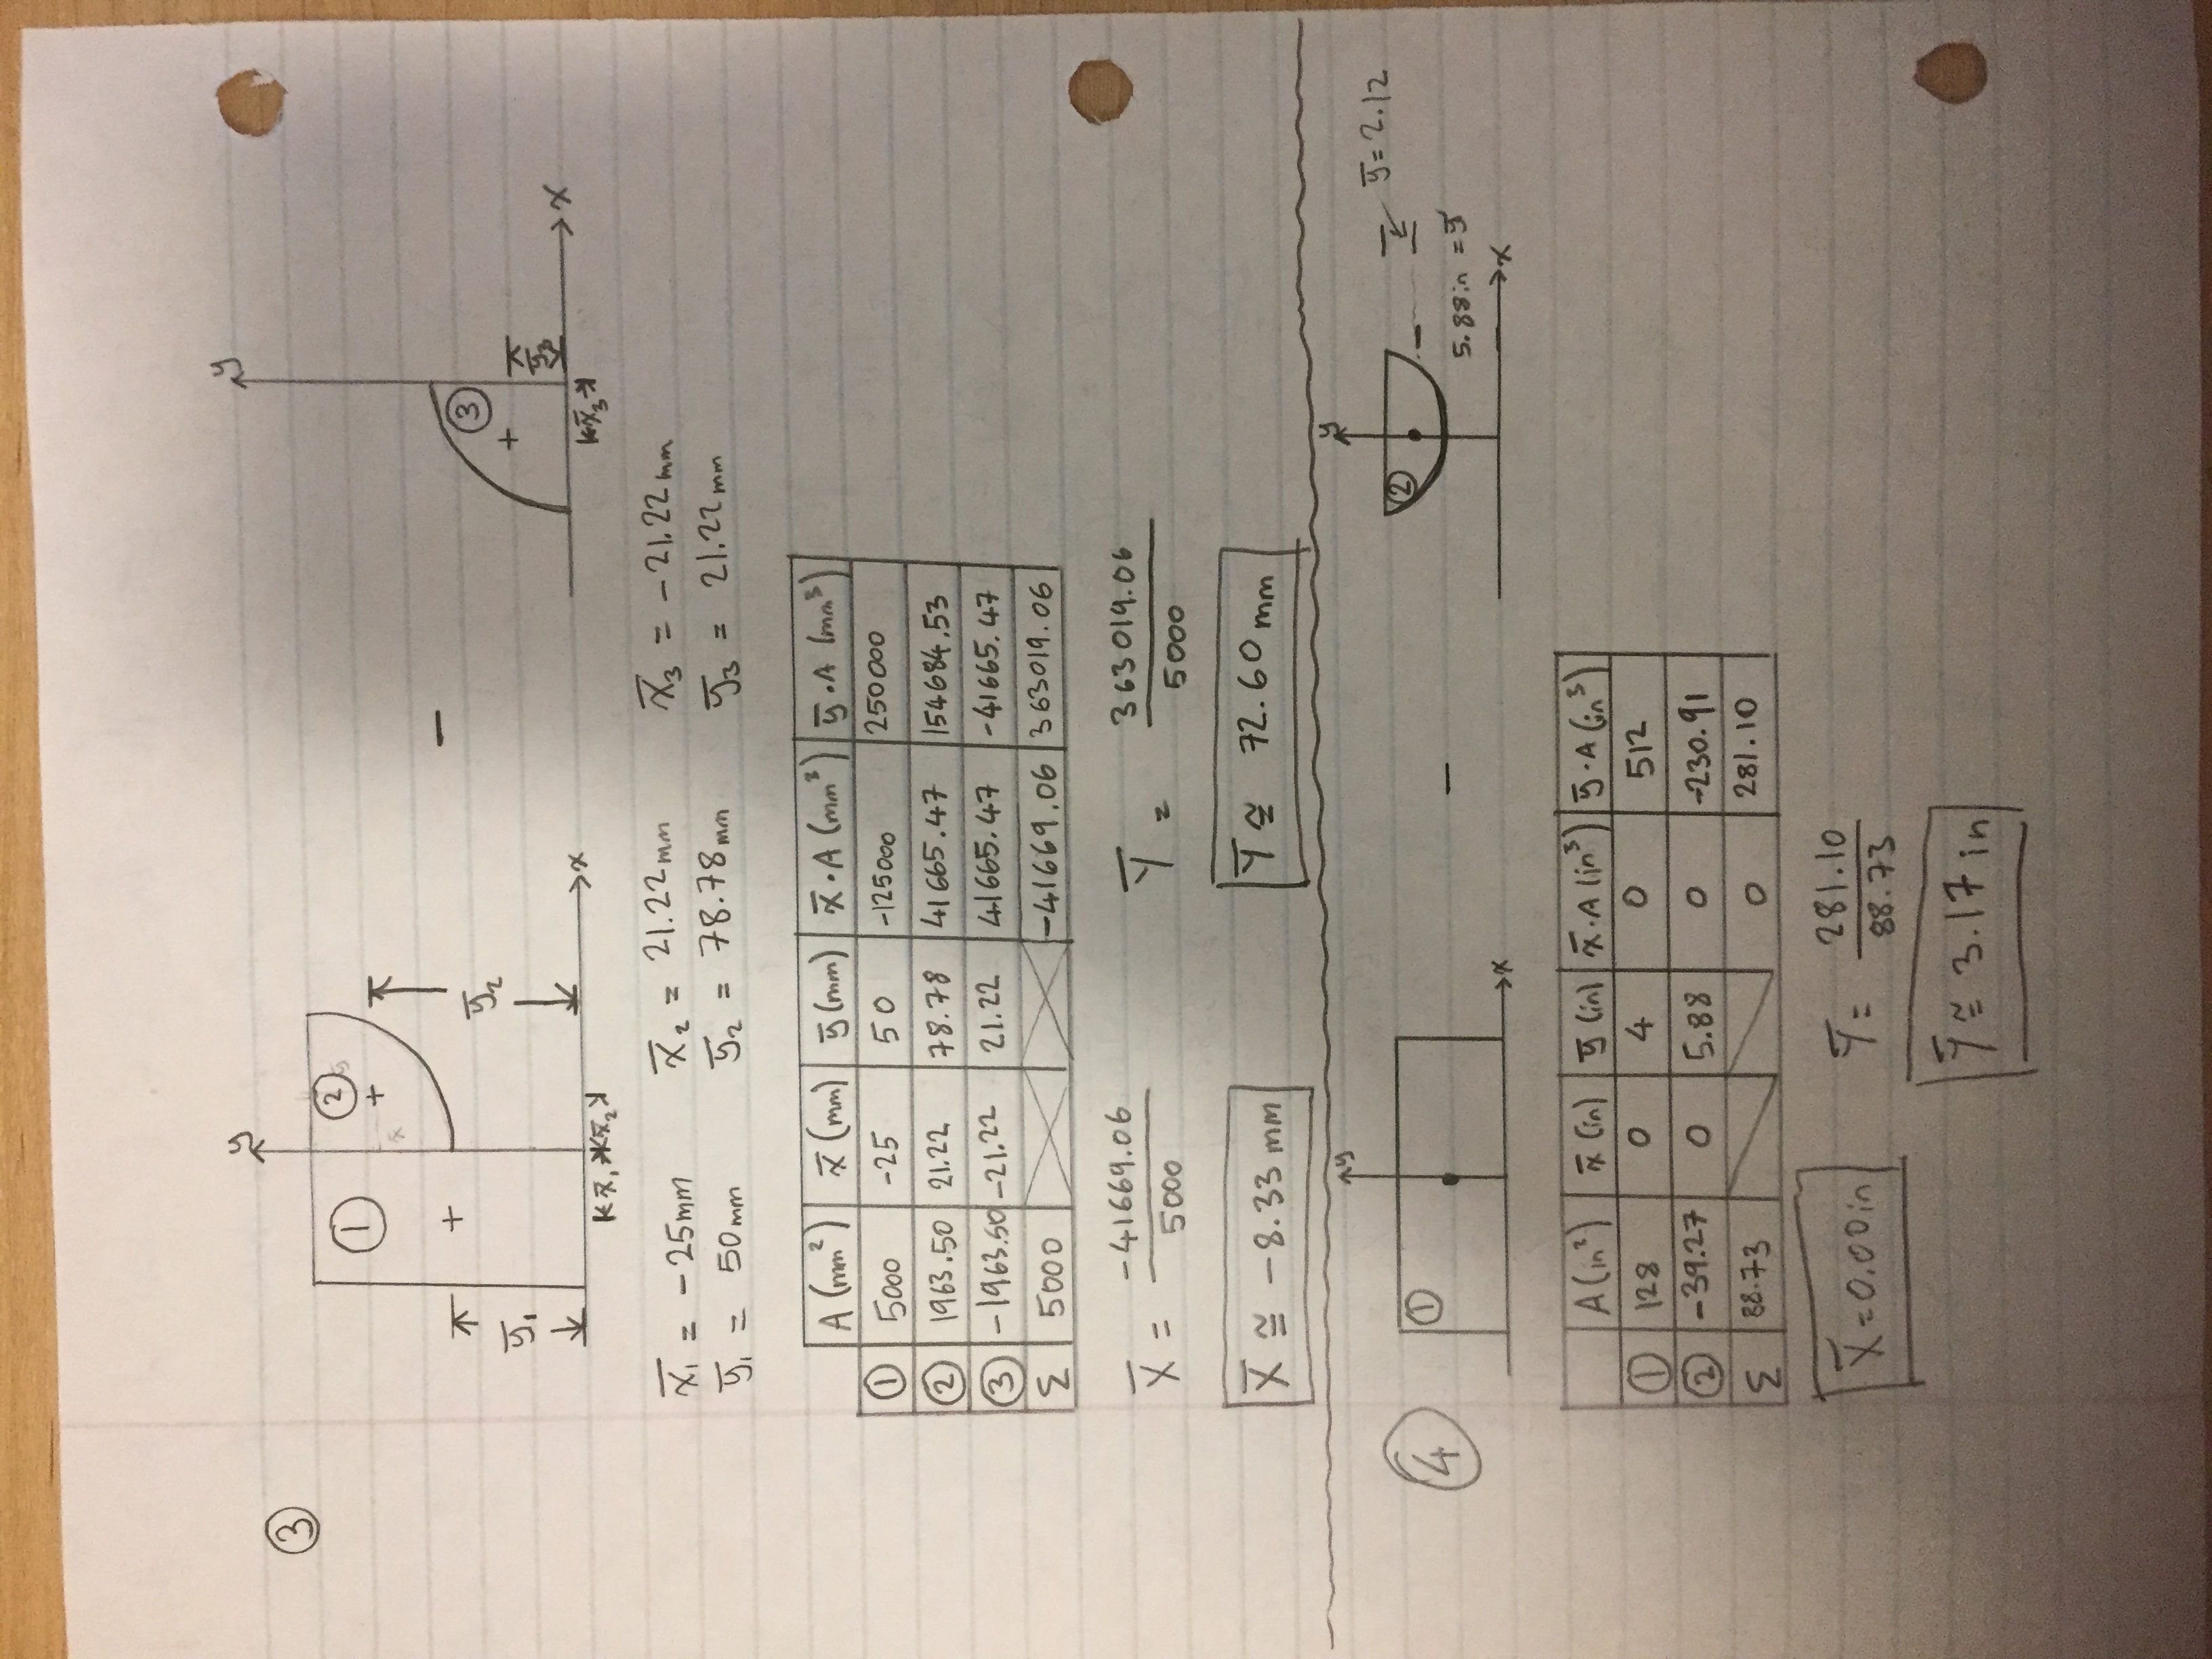 ③
y
①
②
ȳ₁
ȳ₂
x
x̄₁
x̄₂
−
y
③
ȳ₃
x
x̄₃
x̄₁ = -25mm x̄₂ = 21.22mm x̄₃ = -21.22mm
ȳ₁ = 50mm ȳ₂ = 78.78mm ȳ₃ = 21.22mm
A(mm²) x̄(mm) ȳ(mm) x̄·A(mm³) ȳ·A(mm³)
① 5000 -25 50 -125000 250000
② 1963.50 21.22 78.78 41665.47 154684.53
③ -1963.50 -21.22 21.22 41665.47 -41665.47
Σ 5000 -41669.06 363019.06
X̄ = -41669.06 / 5000 Ȳ = 363019.06 / 5000
X̄ ≅ -8.33mm Ȳ ≅ 72.60mm
④
y
①
x
−
y
②
ȳ=2.12
5.88in = ȳ
x
A(in²) x̄(in) ȳ(in) x̄·A(in³) ȳ·A(in³)
① 128 0 4 0 512
② -39.27 0 5.88 0 -230.91
Σ 88.73 0 281.10
X̄=0.00in Ȳ = 281.10 / 88.73
Ȳ ≅ 3.17in